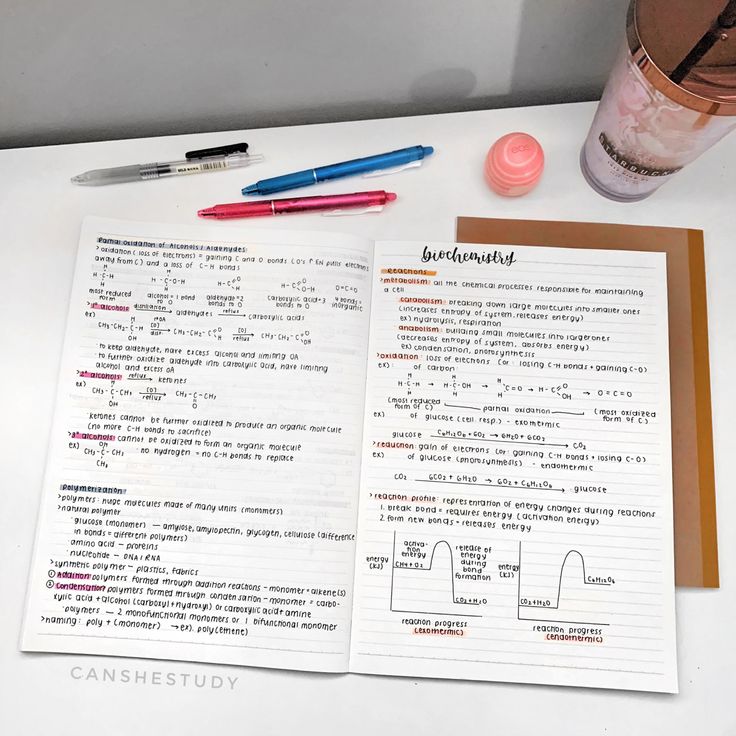 eos
STARBUCKS
Partial Oxidation of Alcohols / Aldehydes:
>oxidation (loss of electrons) = gaining C and O bonds (O's ↑ EN pulls electrons
away from C) and a loss of C-H bonds
most reduced form
alcohol = 1 bond to O
aldehyde = 2 bonds to O
carboxylic acid = 3 bonds to O
4 bonds = inorganic
>1° alcohols: distillation → aldehydes reflux → carboxylic acids
ex) CH₃-CH₂-C-H [O] dist. CH₃-CH₂-C [O] reflux CH₃-CH₂-C
· to keep aldehyde, have excess alcohol and limiting OA
· to further oxidize aldehyde into carboxylic acid, have limiting
alcohol and excess OA
>2° alcohols: reflux → ketones
ex) CH₃-C-CH₃ [O] reflux → CH₃-C-CH₃
OH
· ketones cannot be further oxidized to produce an organic molecule
(no more C-H bonds to sacrifice)
>3° alcohols: cannot be oxidized to form an organic molecule
OH
ex) CH₃-C-CH₃ · no hydrogen = no C-H bonds to replace
CH₃
Polymerization:
>polymers: huge molecules made of many units (monomers)
>natural polymer
· glucose (monomer) — amylose, amylopectin, glycogen, cellulose (difference
in bonds = different polymers)
· amino acid — proteins
· nucleotide — DNA / RNA
>synthetic polymer — plastics, fabrics
① Addition: polymers formed through addition reactions - monomer = alkene(s)
② Condensation: polymers formed through condensation - monomer = carbo-
xylic acid + alcohol (carboxyl + hydroxyl) or carboxylic acid + amine
· polymers — 2 monofunctional monomers or 1 bifunctional monomer
>naming: poly + (monomer) → ex. poly(ethene)
biochemistry
Reactions
>metabolism: all the chemical processes responsible for maintaining
a cell
catabolism: breaking down large molecules into smaller ones
(increases entropy of system, releases energy)
ex) hydrolysis, respiration
anabolism: building small molecules into large ones
(decreases entropy of system, absorbs energy)
ex) condensation, photosynthesis
>oxidation: loss of electrons (or: losing C-H bonds + gaining C-O)
ex) of carbon:
H-C-H → H-C-OH → C=O → H-C → O=C=O
(most reduced form of C) partial oxidation (most oxidized form of C)
ex) of glucose (cell resp.) - exothermic
glucose C₆H₁₂O₆ + 6O₂ → 6H₂O + 6CO₂ CO₂
>reduction: gain of electrons (or: gaining C-H bonds + losing C-O)
ex) of glucose (photosynthesis) - endothermic
CO₂ 6CO₂ + 6H₂O → 6O₂ + C₆H₁₂O₆ glucose
>reaction profile: representation of energy changes during reactions
1. break bond = requires energy (activation energy)
2. form new bonds = releases energy
energy (kJ)
activation energy
CH₄ + O₂
release of energy during bond formation
CO₂ + H₂O
reaction progress
(exothermic)
energy (kJ)
C₆H₁₂O₆
CO₂ + H₂O
reaction progress
(endothermic)
CANSHESTUDY